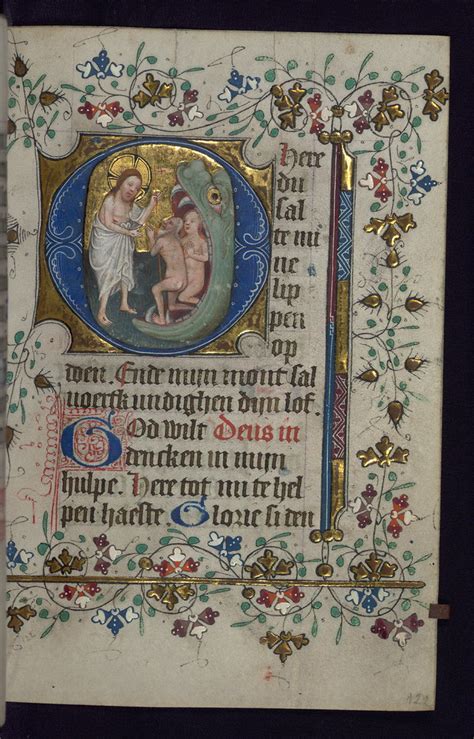 O Here
du
sal
te mi
ne
lip
pen
op
doen. Ende mijn mont sal
voertkundighen dijn lof.
God wilt Deus in
dencken in mijn
hulpe. Here tot mi te hel
pen haeste. Glorie si den